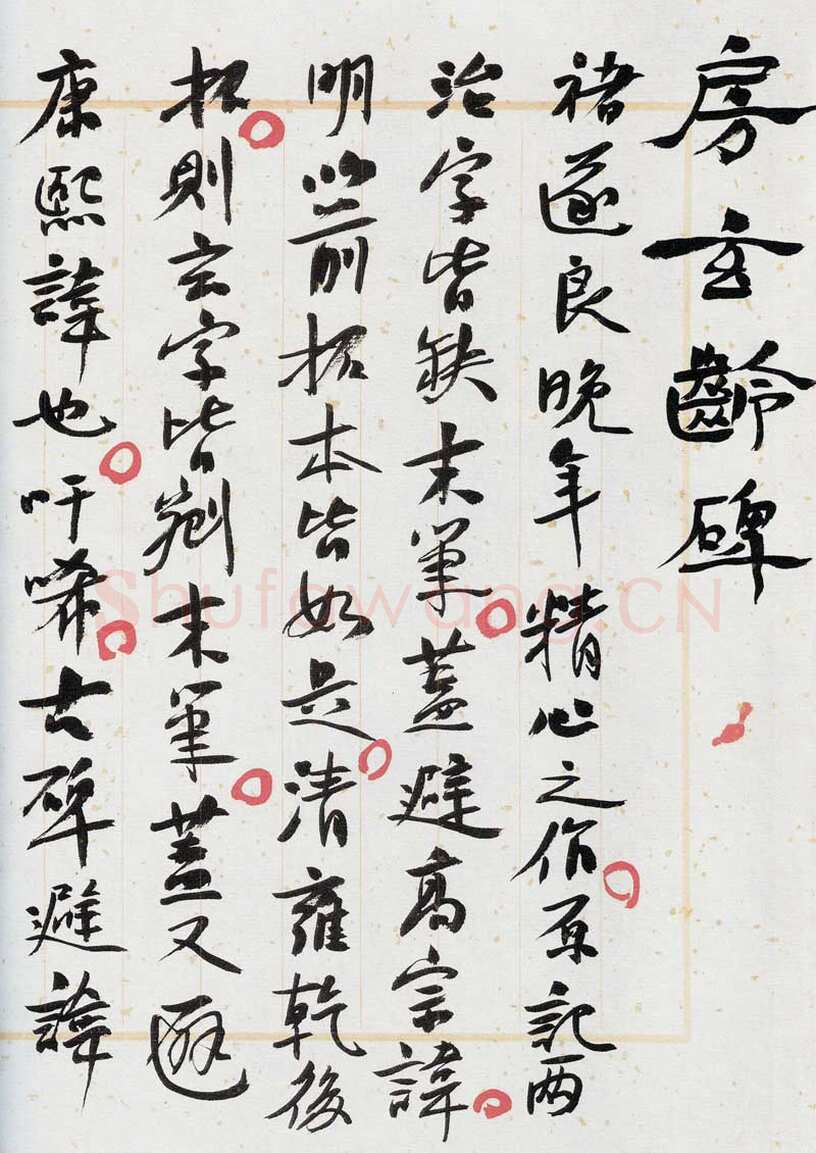 房玄齡碑
褚遂良晚年精心之作原記两
治字皆缺末筆蓋避高宗諱
明以前拓本皆如是清雍乾後
拓則玄字皆剜末筆蓋又避
康熙諱也吁唏古碑避諱
Shufawang.CN